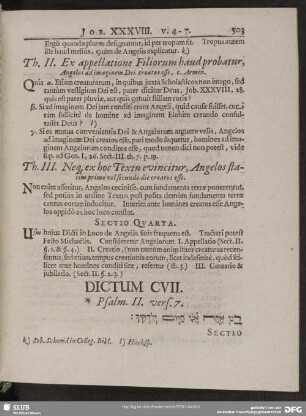 JOB. XXXVIII. v. 4-7. 503
Ergò quando plures designantur, id per tropum fit. Tropus autem
ille haud melius, quàm de Angelis explicatur. k)
Th. II. Ex appellatione Filiorum haud probatur,
Angelos ad imaginem Dei creatos esse, c. Armin.
Quia α. Etiam creaturarum, in quibus juxta Scholasticos non imago, sed
tantùm vestigium Dei est, pater dicitur Deus, Job. XXXVIII, 28.
quis est pater pluviæ, aut quis genuit stillam roris?
β. Si ad imaginem Dei jam conditi erant Angeli, quid causæ fuisset, cur
tàm sollicitè de homine ad imaginem Elohim creando consultasset
Deus? l)
γ. Si ex mutua convenientia Dei & Angelorum arguere velis, Angelos
ad imaginem Dei creatos esse, pari modo sequetur, homines ad imaginem
Angelorum conditos esse, quod tamen dici non potest, vide
sup. ad Gen. I, 26. Sect. III. th. 7. p. 19.
Th. III. Neq, ex hoc Textu evincitur, Angelos statim
primo vel secundo die creatos esse.
Non enim asseritur, Angelos cecinisse, cum fundamenta terræ ponerentur,
sed potius in ordine Textus post posita demum fundamenta terræ
cantus eorum inducitur. Interim ante homines creatos esse Angelos
oppidò ex hoc loco constat.
SECTIO QUARTA.
Usus hujus Dicti in Loco de Angelis satis frequens est. Tractari potest
Festo Michaëlis. Consideretur Angelorum I. Appellatio (Sect. II.
§. 1. & §. 4.) II. Creatio, non tantùm enim inter creaturas recensentur,
sed etiam tempus creationis eorum, licet indefinitè, quòd scilicet
ante homines conditi sint, refertur (th. 3.) III. Cantatio &
jubilatio. (Sect. II. §. 2. 3.)
DICTUM CVII.
* Psalm. II. vers. 7.
SECTIO
k) Seb. Schmid in Colleg. Bibl. l)